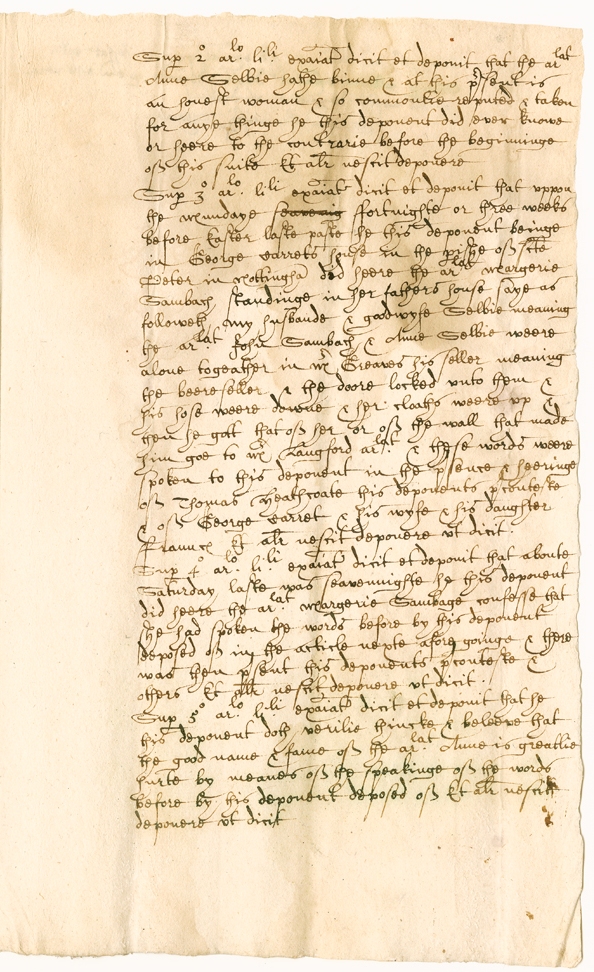 Sup 2o ar.lo li.li exaiat dicit et deponit that the ar.lat
Anne Selbie hathe binne & at this psent is
an honest woman & so commonlie reputed & taken
for anye thinge he this deponent did ever knowe
or heere to the contrarie before the beginninge
off this suite Et alr nescit deponere
Sup 3o ar.lo li.li exaiat dicit et deponit that uppon
the mundaye seavenig fortnighte or three weeks
before Easter laste paste he this deponent beinge
in George Garrets house in the pishe off Scte
Peter in Nottingha did heere the ar.lat Margerie
Sambach standinge in her fathers house saye as
followeth my husbande & goodwyfe Selbie meaning
the ar.lat John Sambach & Anne Selbie weere
alone togeather in Mr Greaves his seller meaning
the beere seller & the doore locked unto them &
his hose weere downe & her cloaths weere up &
then he gott that off her or off the wall that made
him goe to Mr Langford ar.lat & these words weere
spoken to this deponent in the psence & heeringe
off Thomas Heathcoate this deponents pconteste
& off George Garret & his wyfe & his daughter
Fraunces Et alr nescit deponere ut dicit.
Sup 4o ar.lo li.li exaiat dicit et deponit that aboute
Saturday laste was seavennighte he this deponent
did heere the ar.lat Margerie Sambage confesse that
she had spoken the words before by this deponent
deposed off in the article nexte afore goinge & there
was then psent this deponents pconteste &
others Et alr nescit deponere ut dicit.
Sup 5o ar.lo li.li exaiat dicit et deponit that he
this deponent doth verilie thincke & beleeve that
the good name & fame off the ar.lat Anne is greatlie
hurte by meanes off the speakinge off the words
before by this deponent deposed off Et alr nescit
deponere ut dicit